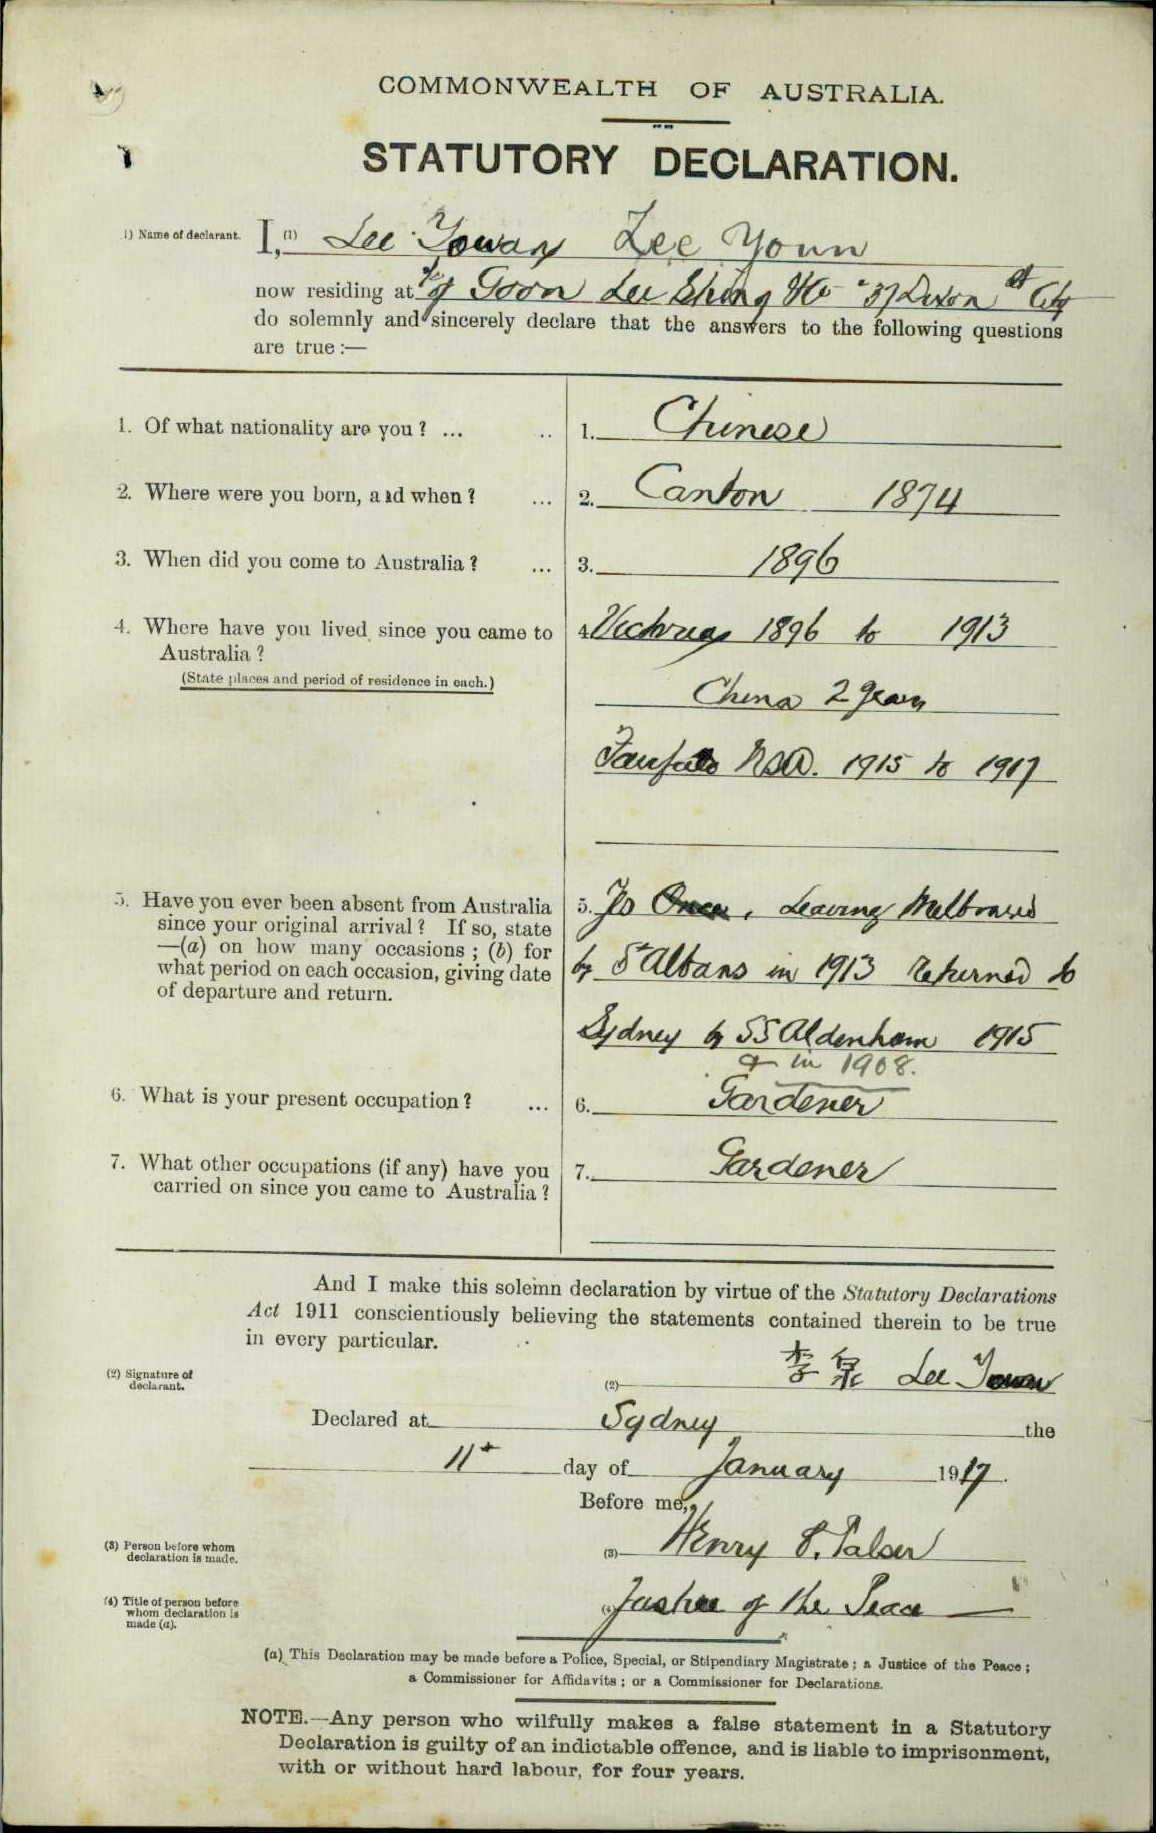 COMMONWEALTH OF AUSTRALIA.
STATUTORY DECLARATION.
(1) Name of declarant. I,(1) Lee Yowan Lee Youn
now residing at c/o Goon Lee Shing & Co 37 Dixon St City
do solemnly and sincerely declare that the answers to the following questions
are true :—
1. Of what nationality are you ? ... .. 1. Chinese
2. Where were you born, and when ? ... 2. Canton 1874
3. When did you come to Australia ? ... 3. 1896
4. Where have you lived since you came to 4. Victoria 1896 to 1913
Australia ?
(State places and period of residence in each.) China 2 years
Fairfield NSW. 1915 to 1917
5. Have you ever been absent from Australia 5. Yes Once, Leaving Melbourne
since your original arrival ? If so, state
—(a) on how many occasions ; (b) for by St Albans in 1913 returned to
what period on each occasion, giving date
of departure and return.
Sydney by SS Aldenham 1915
& in 1908.
6. What is your present occupation ? ... 6. Gardener
7. What other occupations (if any) have you 7. Gardener
carried on since you came to Australia ?
And I make this solemn declaration by virtue of the Statutory Declarations
Act 1911 conscientiously believing the statements contained therein to be true
in every particular.
(2) Signature of declarant. (2) 李泉 Lee Yowan
Declared at Sydney the
11th day of January 1917.
Before me,
(3) Person before whom declaration is made. (3) Henry Palser
(4) Title of person before whom declaration is made (a). (4) Justice of the Peace
(a) This Declaration may be made before a Police, Special, or Stipendiary Magistrate ; a Justice of the Peace ;
a Commissioner for Affidavits ; or a Commissioner for Declarations.
NOTE.—Any person who wilfully makes a false statement in a Statutory
Declaration is guilty of an indictable offence, and is liable to imprisonment,
with or without hard labour, for four years.